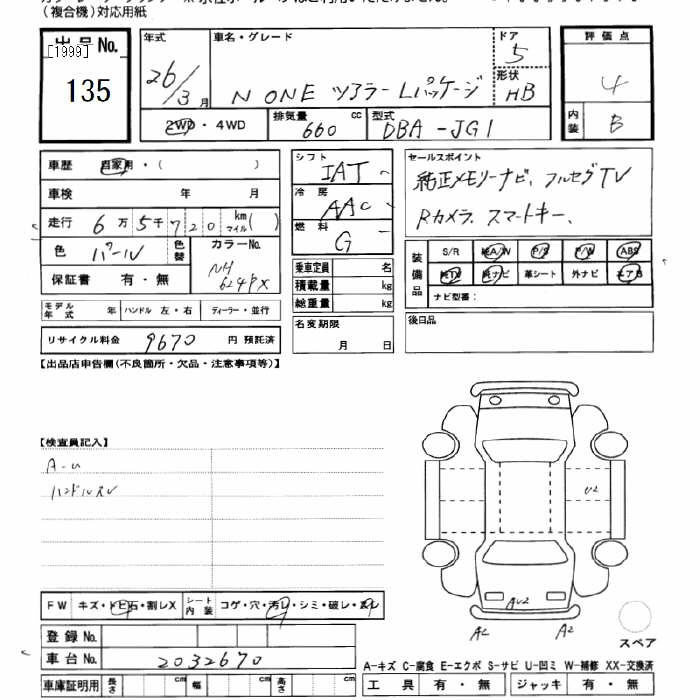 (複合機)対応用紙
出品No.
[1999]
135
年式 車名・グレード ドア
26/3月 N ONE ツアラーLパッケージ 5
形状 HB
2WD・4WD 排気量 660 cc 型式 DBA-JG1
評価点
4
内装 B
車歴 自家用・( )
車検 年 月
走行 6万5千720 km マイル( )
色 パール 色替 カラーNo. NH624PX
保証書 有・無
モデル年式 年 ハンドル 左・右 ディーラー・並行
リサイクル料金 9670 円 預託済
シフト IAT
冷房 AAC
燃料 G
乗車定員 名
積載量 kg
総重量 kg
名変期限
月 日
セールスポイント
純正メモリーナビ、フルセグTV
Rカメラ、スマートキー、
装備品 S/R 純A/W P/S P/W ABS
純TV 純ナビ 革シート 外ナビ エアB
ナビ型番:
後日品
【出品店申告欄(不良箇所・欠品・注意事項等)】
【検査員記入】
A-U
ハンドルスレ
U2
AU2
A2 A2
スペア
FW キズ・トビ石・割レX シート内装 コゲ・穴・汚レ・シミ・破レ・スレ
登録No.
車台No. 2032670
車庫証明用 長さ cm 幅 cm 高さ cm
A-キズ C-腐食 E-エクボ S-サビ U-凹ミ W-補修 XX-交換済
工具 有・無 ジャッキ 有・無